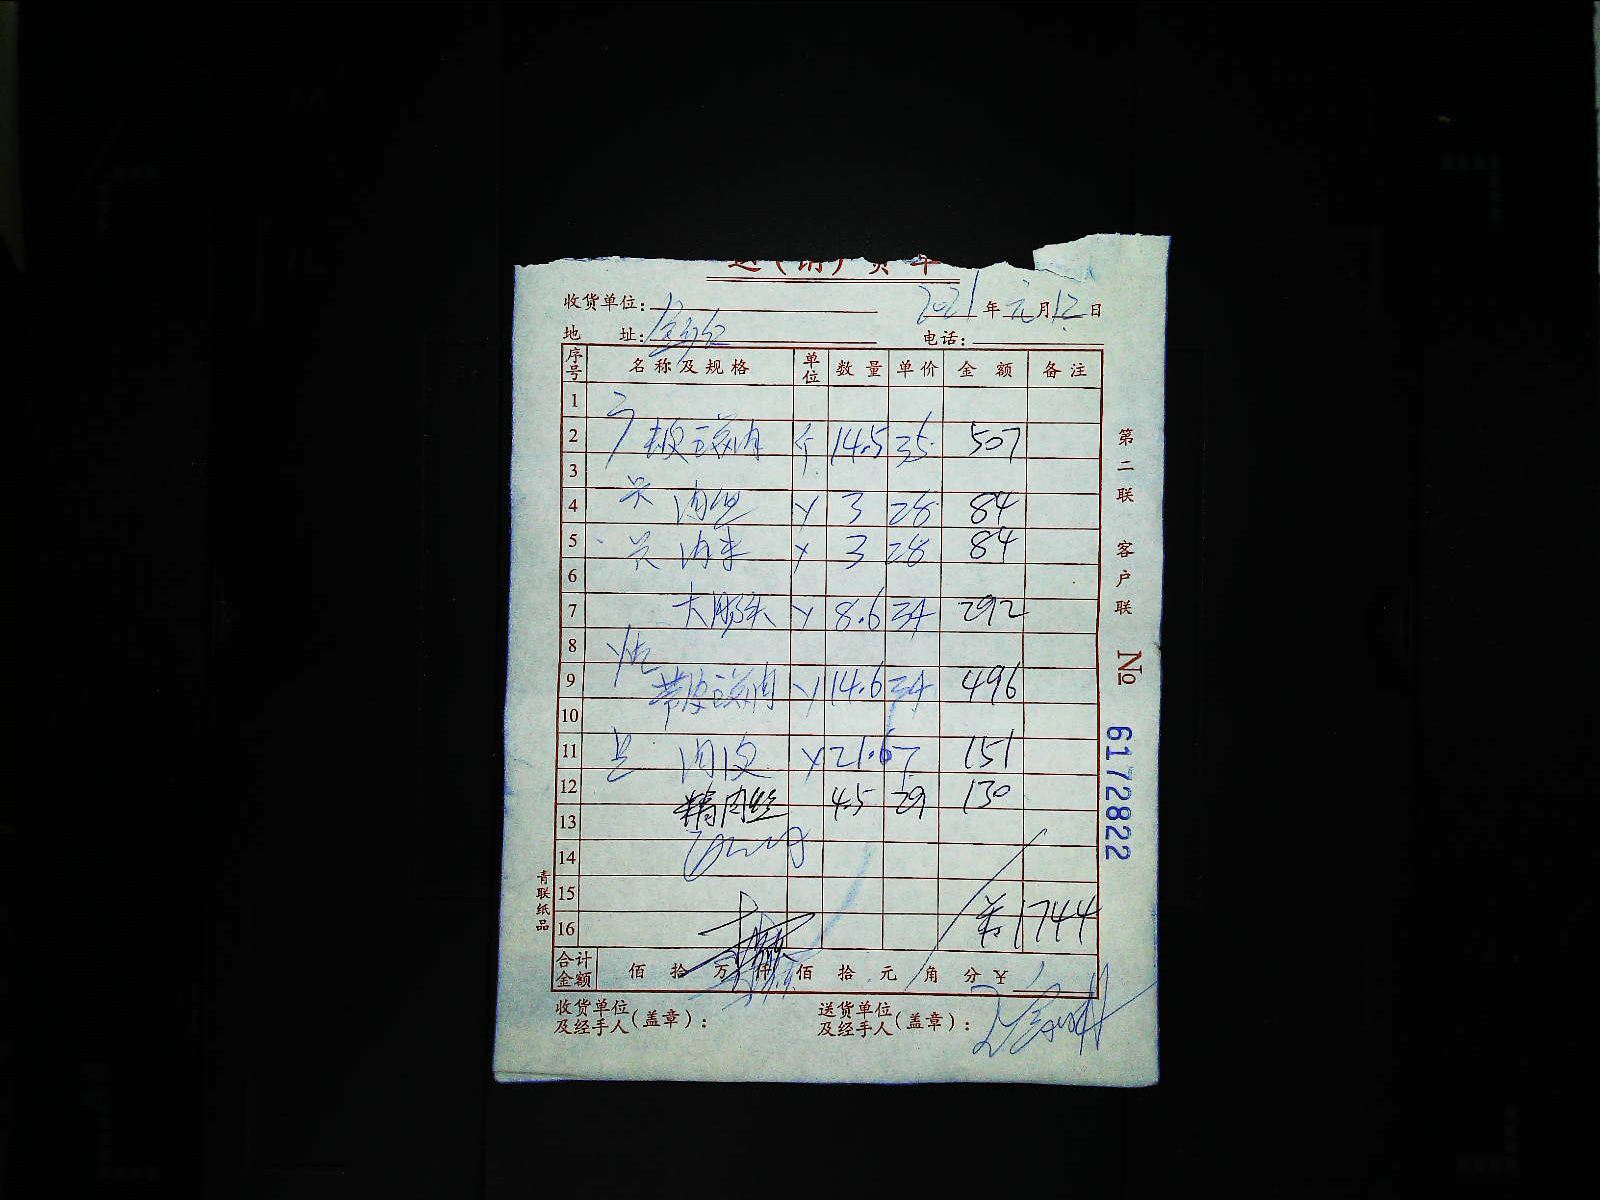 送(销)货单
收货单位: 2021年元月12日
地 址: 电话:
序号 名称及规格 单位 数量 单价 金额 备注
1
2 14.5 35 507
3
4 肉丝 3 28 84
5 肉末 3 28 84
6
7 大 8.6 34 292
8
9 带皮 肉 14.6 34 496
10
11 肉皮 21.6 7 151
12 精肉丝 4.5 29 130
13
14
15
16 1744
合计金额 佰 拾 万 仟 佰 拾 元 角 分 ¥
收货单位及经手人(盖章): 送货单位及经手人(盖章):
第二联 客户联
No 6172822
青联纸品